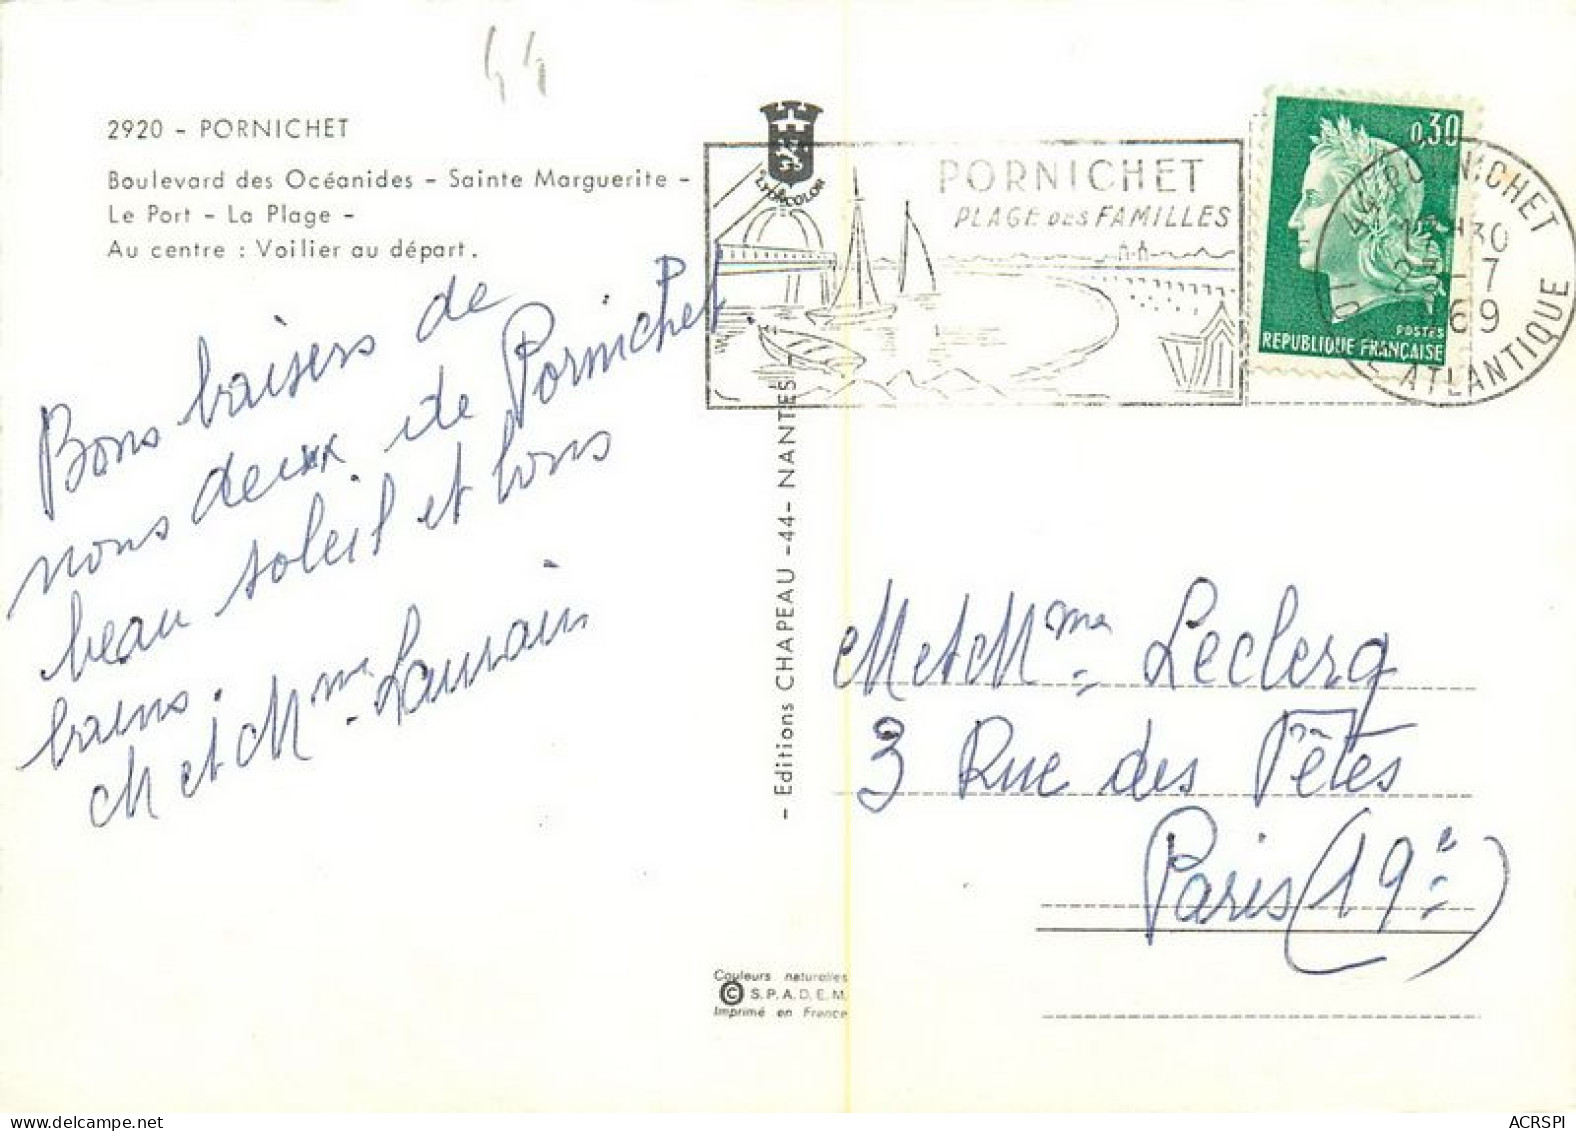 44
2920 - PORNICHET
Boulevard des Océanides - Sainte Marguerite -
Le Port - La Plage -
Au centre : Voilier au départ.
Bons baisers de
nous deux de Pornichet
beau soleil et bons
bains.
M et Mme
LYORCOLOR
PORNICHET
PLAGE DES FAMILLES
0,30
POSTES
REPUBLIQUE FRANÇAISE
44 PORNICHET
30
-7
69
ATLANTIQUE
- Editions CHAPEAU -44- NANTES -
M et Mme Leclerq
3 Rue des Fêtes
Paris (19e)
Couleurs naturelles
© S.P.A.D.E.M.
Imprimé en France
ACRSPI